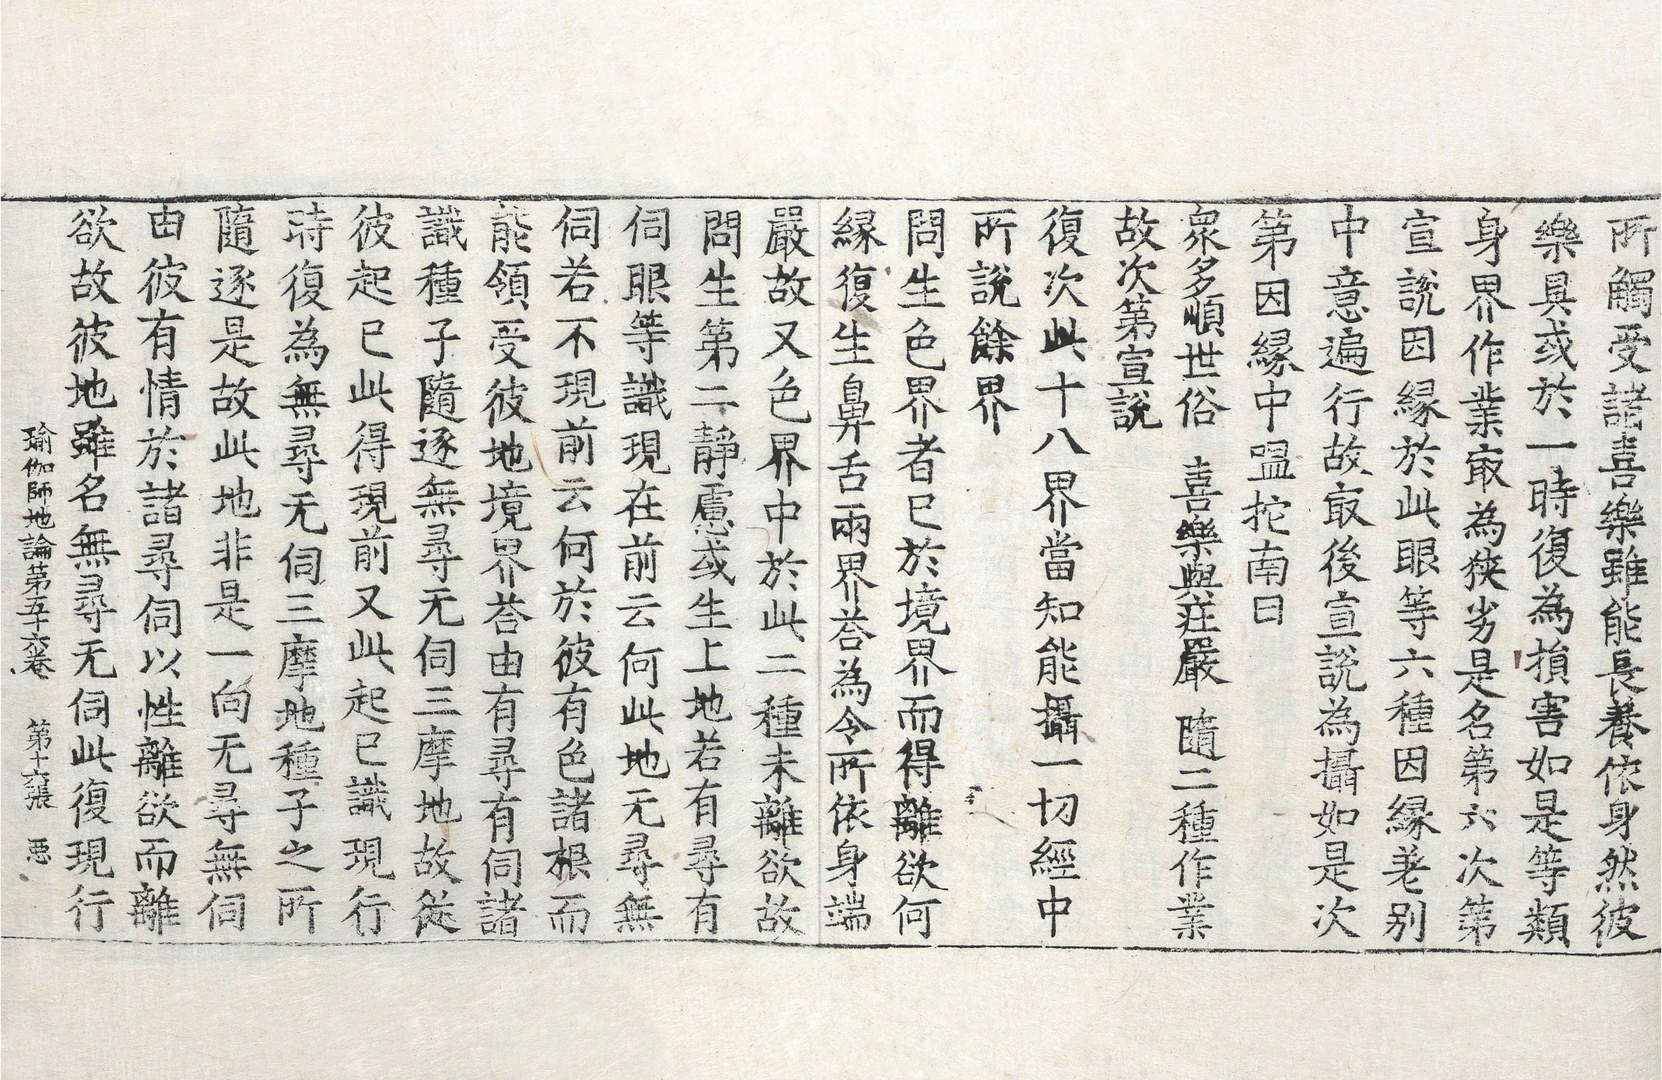 所觸受諸喜樂雖能長養依身然彼
樂具或於一時復為損害如是等類
身界作業㝡為狹劣是名第六次第
宣說因緣於此眼等六種因緣差別
中意遍行故㝡後宣說為攝如是次
第因緣中嗢拕南曰
衆多順世俗 喜樂與莊嚴 隨二種作業
故次第宣說
復次此十八界當知能攝一切經中
所說餘界
問生色界者已於境界而得離欲何
緣復生鼻舌兩界荅為令所依身端
嚴故又色界中於此二種未離欲故
問生第二靜慮或生上地若有尋有
伺眼等識現在前云何此地无尋無
伺若不現前云何於彼有色諸根而
能領受彼地境界荅由有尋有伺諸
識種子隨逐無尋无伺三摩地故從
彼起已此得現前又此起已識現行
時復為無尋无伺三摩地種子之所
隨逐是故此地非是一向无尋無伺
由彼有情於諸尋伺以性離欲而離
欲故彼地雖名無尋无伺此復現行
瑜伽師地論第五十六卷 第十六張 惡